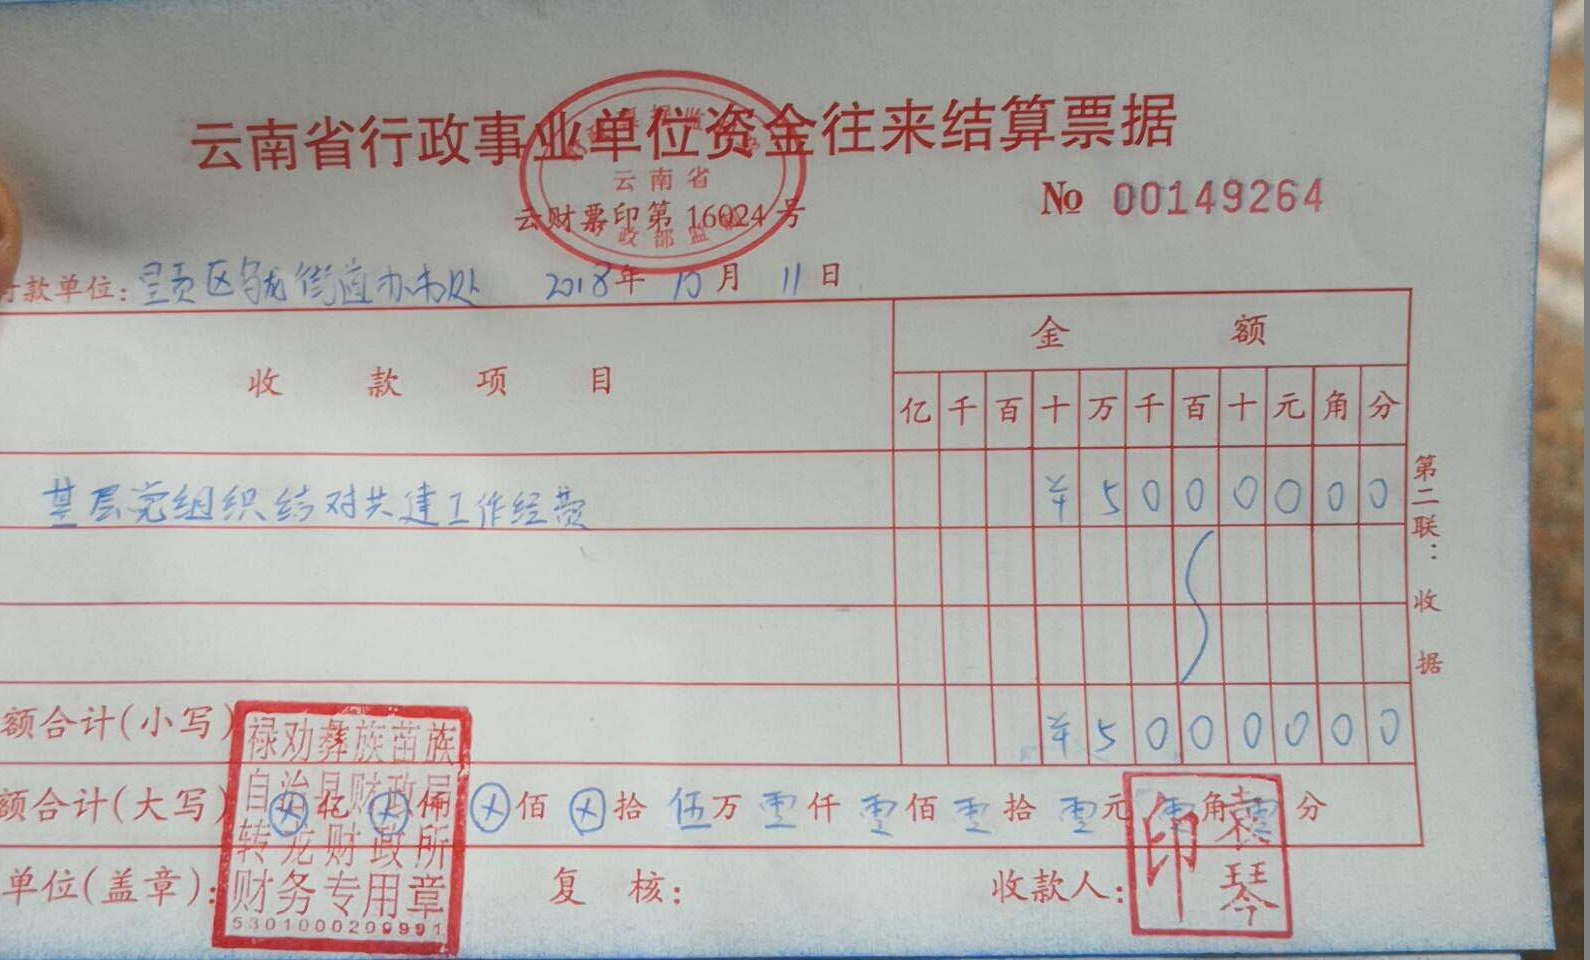 云南省行政事业单位资金往来结算票据
云南省
云财票印第 16024 号
政部监
№ 00149264
付款单位：呈贡区乌龙街道办事处 2018年 10月 11日
收款项目 金额
亿 千 百 十 万 千 百 十 元 角 分
基层党组织结对共建工作经费 ¥ 5 0 0 0 0 0 0
额合计(小写) ¥ 5 0 0 0 0 0 0
额合计(大写) ⊗亿 ⊗仟 ⊗佰 ⊗拾 伍万 零仟 零佰 零拾 零元 零角 零分
单位(盖章)： 复核： 收款人：
禄劝彝族苗族
自治县财政局
转龙财政所
财务专用章
5301000209991
印 琴
第二联：收据